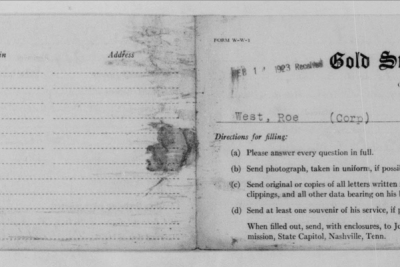 in Address
FORM W-W-1
1923
Gold S
West, Roe (Corp)
Directions for filling:
(a) Please answer every question in full.
(b) Send photograph, taken in uniform, if possi
(c) Send original or copies of all letters written
clippings, and all other data bearing on his
(d) Send at least one souvenir of his service, if p
When filled out, send, with enclosures, to Jo
mission, State Capitol, Nashville, Tenn.